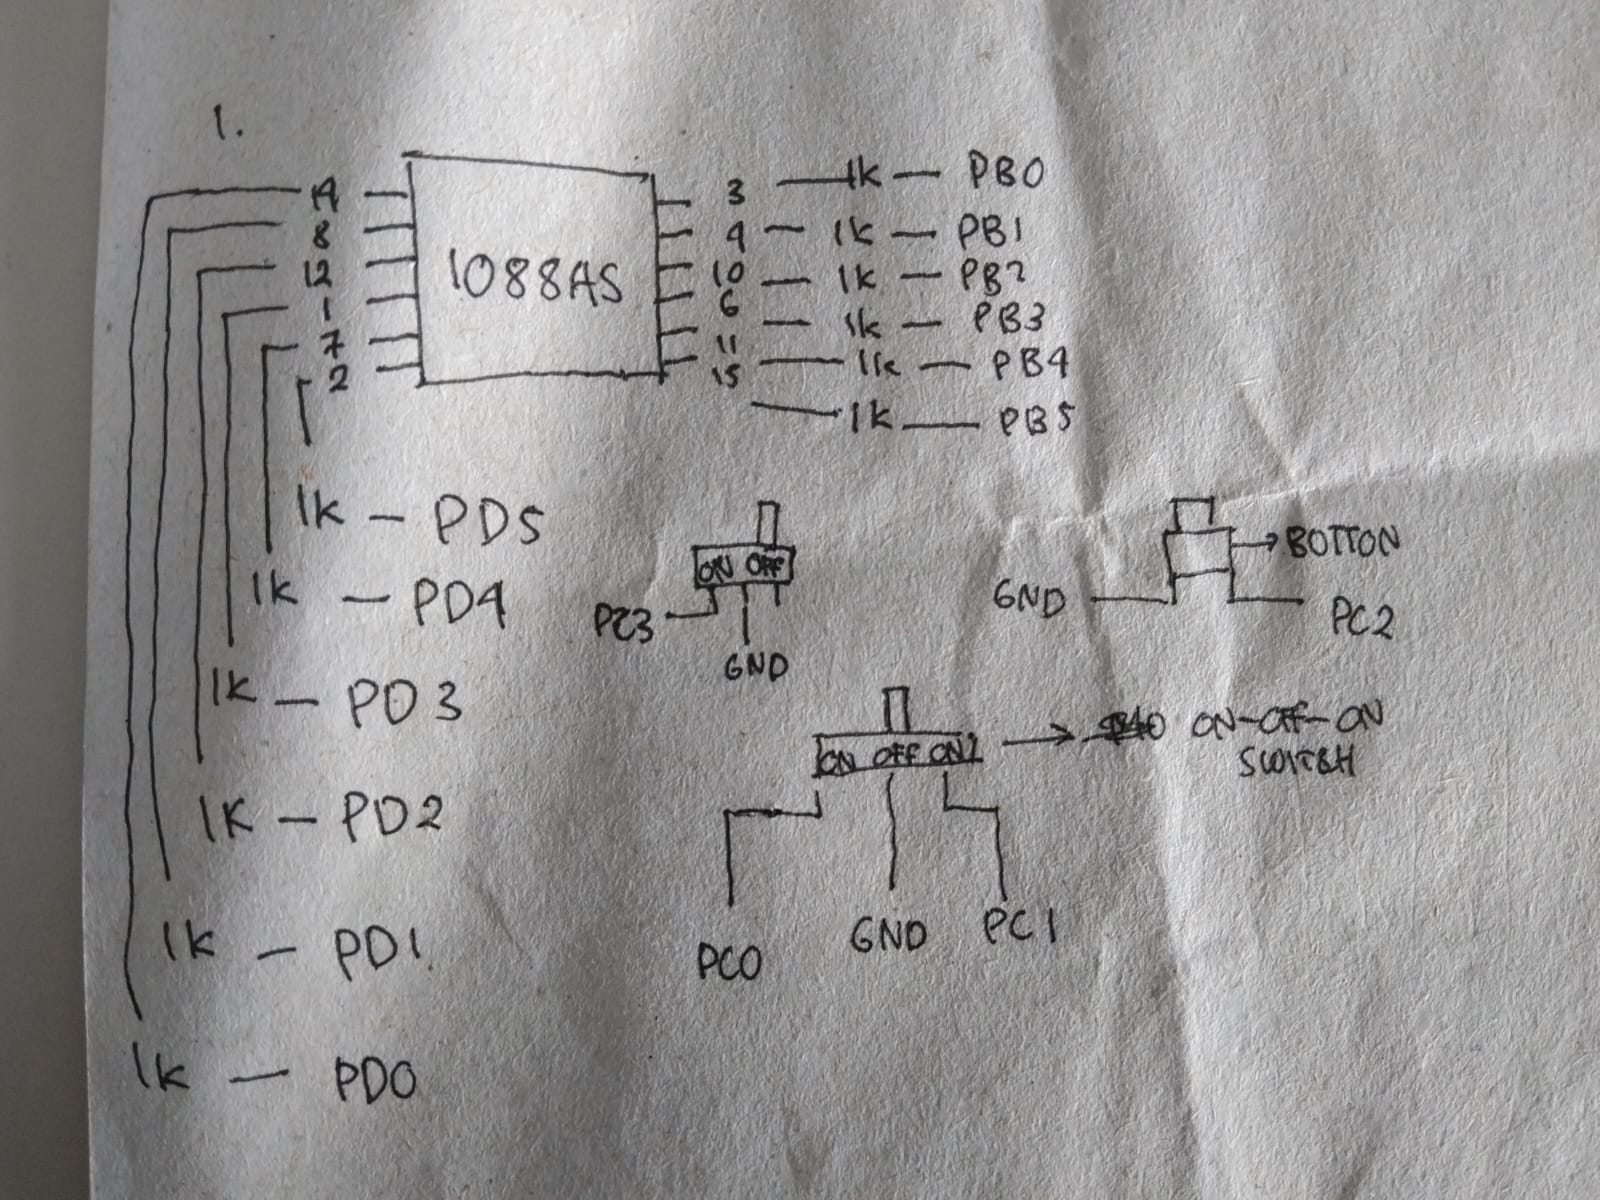 1.
14
8
12
1
7
2
1088AS
3 — 1k — PB0
4 — 1k — PB1
10 — 1k — PB2
6 — 1k — PB3
11 — 1k — PB4
15 — 1k — PB5
1k — PD5
1k — PD4
1k — PD3
1k — PD2
1k — PD1
1k — PD0
ON OFF
PC3
GND
BOTTON
GND
PC2
ON OFF ON
ON-OFF-ON
SWITCH
PC0
GND
PC1